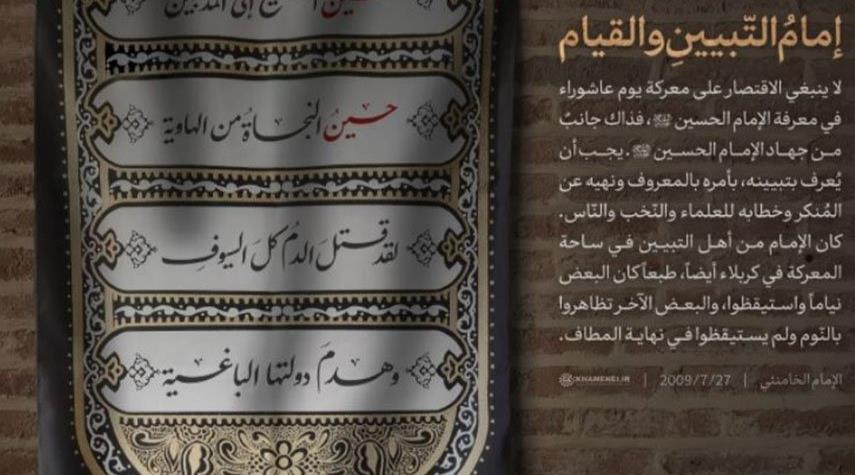 إمامُ التّبيينِ والقيام
لا ينبغي الاقتصار على معركة يوم عاشوراء
في معرفة الإمام الحسين ﷺ، فذاك جانبٌ
من جهاد الإمام الحسين ﷺ. يجب أن
يُعرف بتبيينه، بأمره بالمعروف ونهيه عن
المُنكر وخطابه للعلماء والنّخب والنّاس.
كان الإمام من أهل التبيين في ساحة
المعركة في كربلاء أيضاً، طبعاً كان البعض
نياماً واستيقظوا، والبعض الآخر تظاهروا
بالنّوم ولم يستيقظوا في نهاية المطاف.
الإمام الخامنئي | 2009/7/27 | KHAMENEI.IR
إلى المذنبين
حسينُ النجاةُ من الهاوية
لقد قتلَ الدمُ كلَ السيوفِ
وهدمَ دولتها الباغية